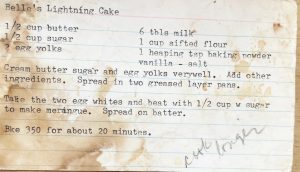 Belle's Lightning Cake
1/2 cup butter
1/2 cup sugar
egg yolks
6 tbls milk
1 cup sifted flour
1 heaping tsp baking powder
vanilla - salt
Cream butter sugar and egg yolks verywell. Add other
ingredients. Spread in two greased layer pans.
Take the two egg whites and beat with 1/2 cup w sugar
to make meringue. Spread on batter.
Bke 350 for about 20 minutes.
cook longer